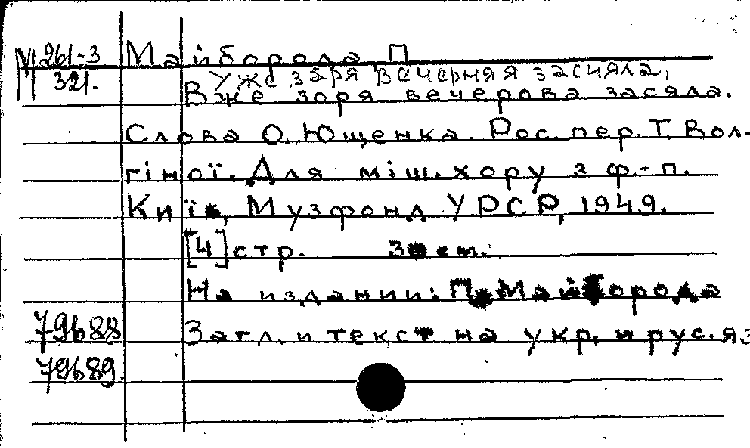 М 261-3 Майборода, П.
321. Уже заря вечерняя засияла.
Вже зоря вечерова засяла.
Слова О. Ющенка. Рос. пер. Т. Вол-
гіної. Для міш. хору з ф.-п.
Київ, Музфонд УРСР, 1949.
[4] стр. см.
На издании: П. Майборода
79688 Загл. и текст на укр. и рус. яз
79689